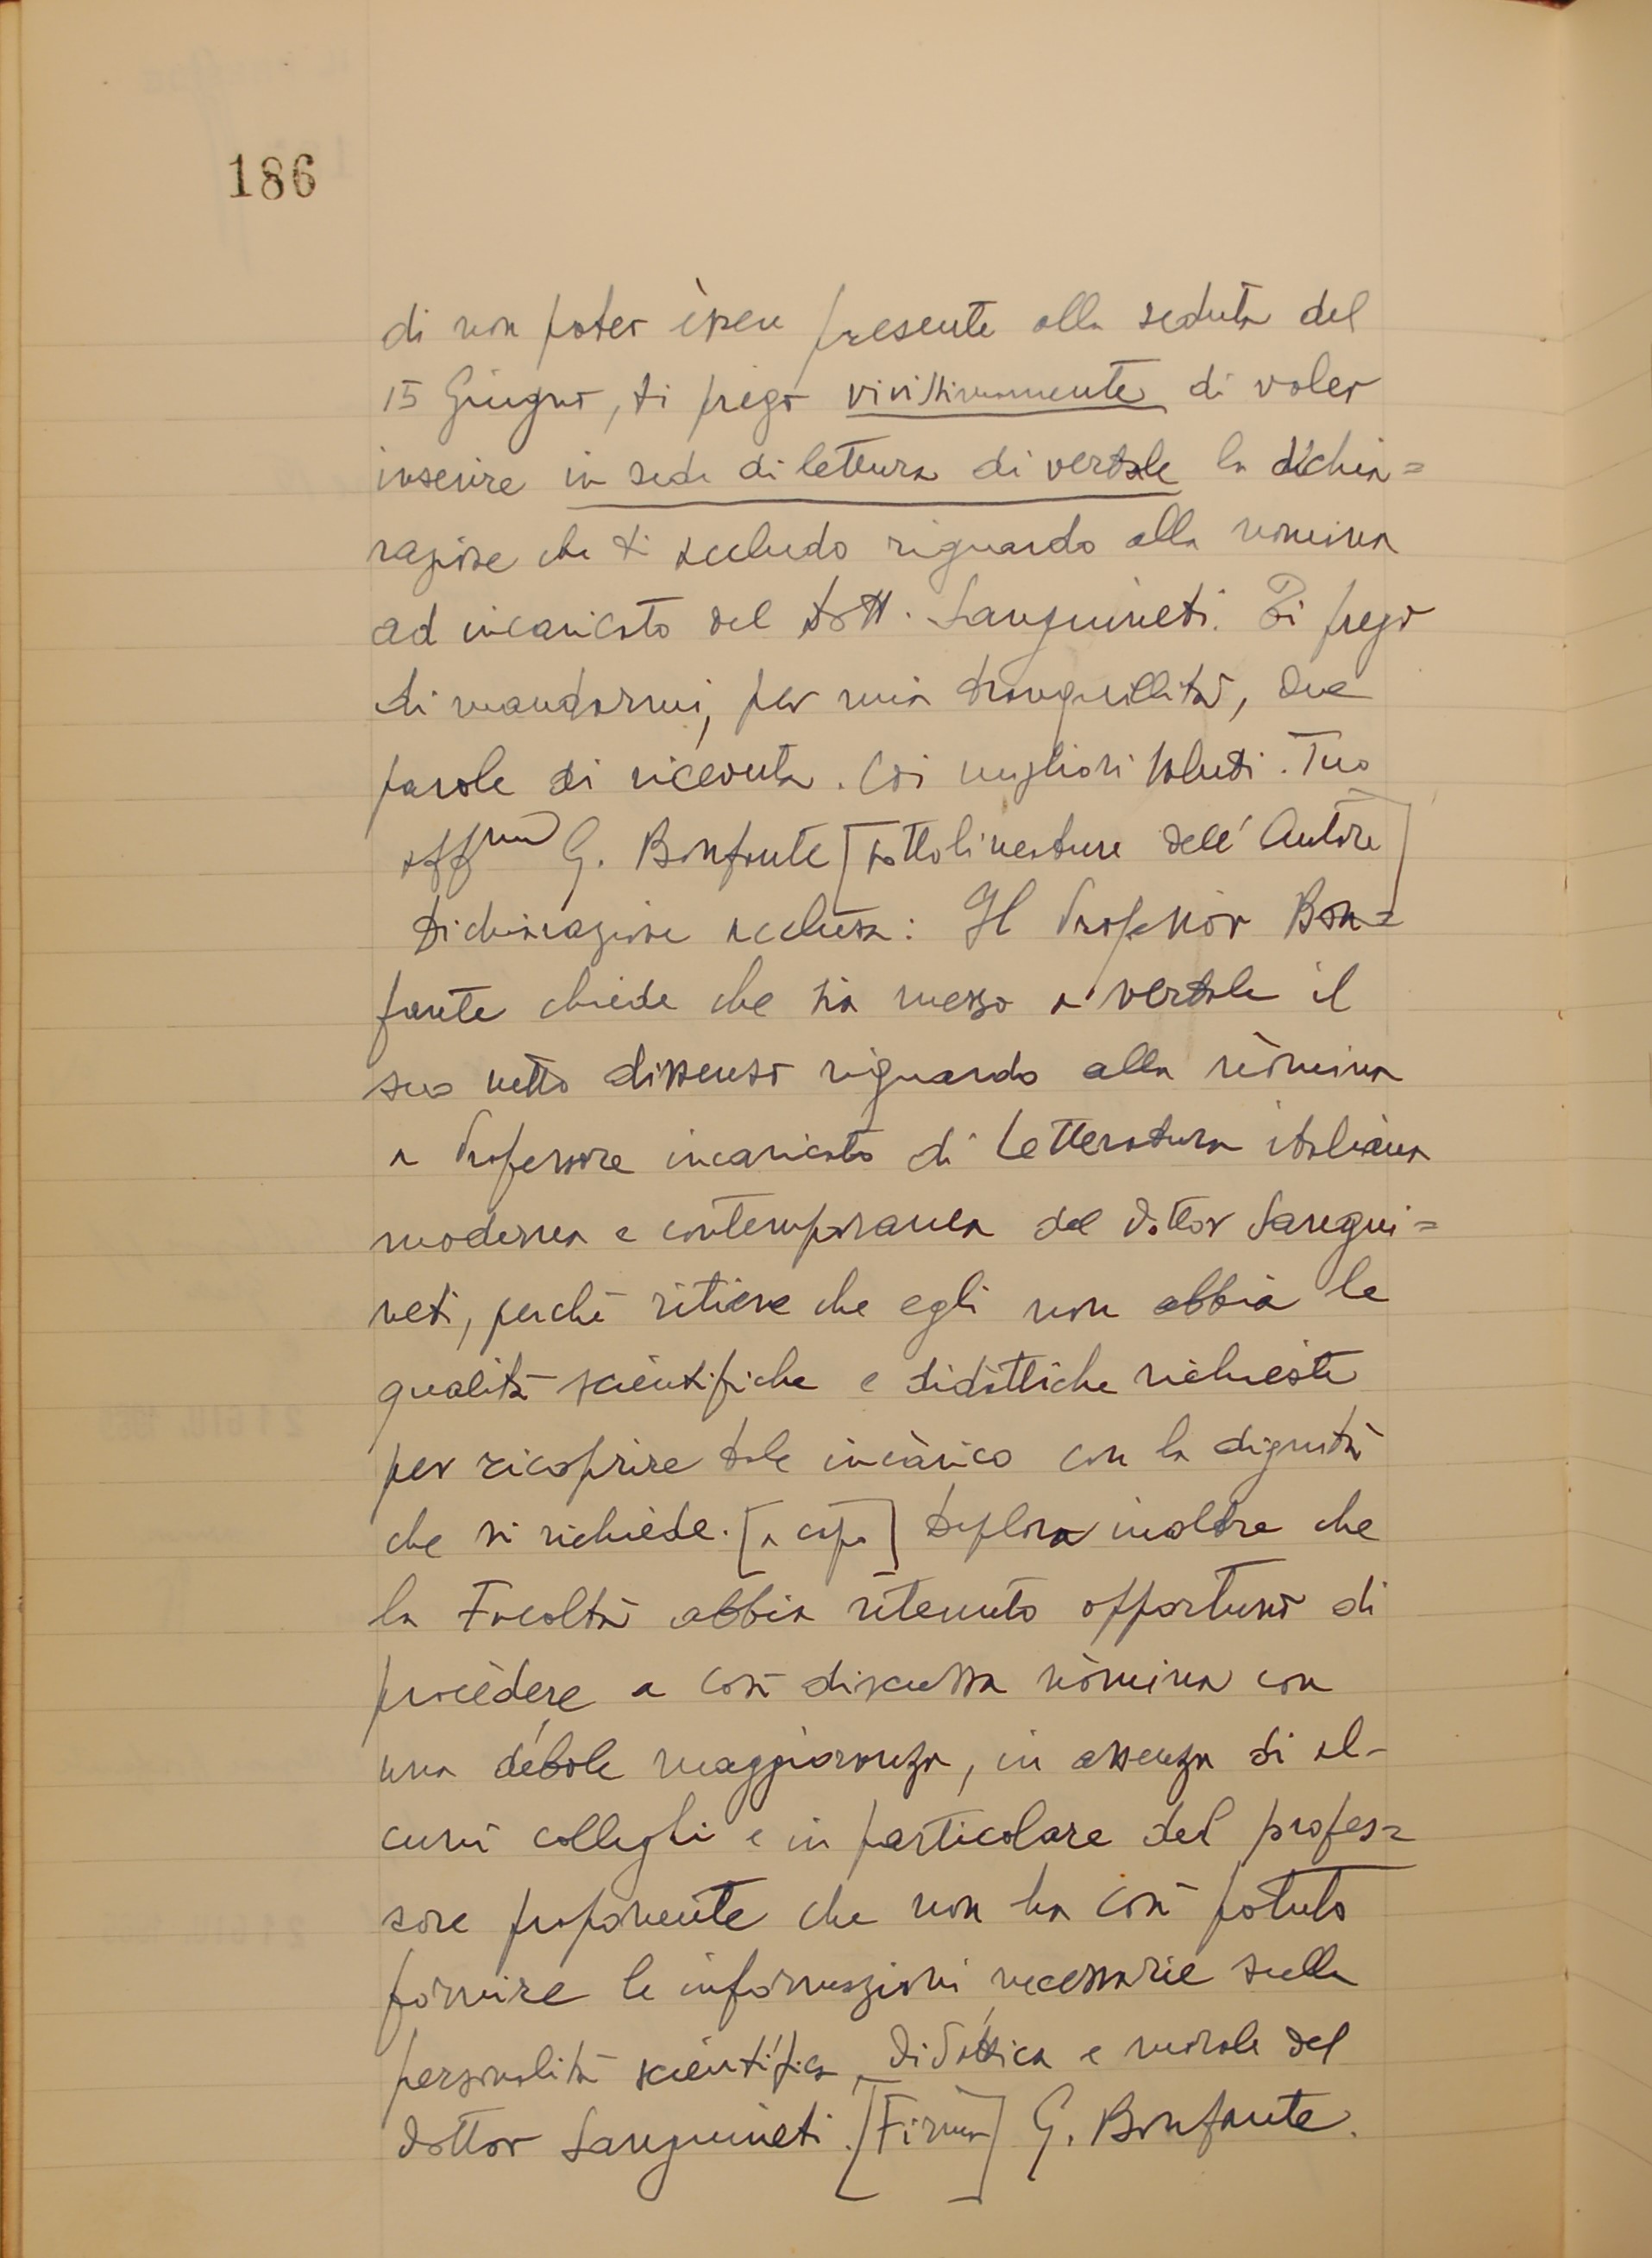 186
di non poter èssere presente alla seduta del
15 Giugno, ti prego vivissimamente di voler
inserire in sede di lettura di verbale la dichia=
razione che ti accludo riguardo alla nomina
ad incaricato del dott. Sanguineti. Ti prego
di mandarmi, per mia tranquillità, due
parole di ricevuta. Coi migliori saluti. Tuo
aff.mo G. Bonfante [sottolineature dell'Autore]
Dichiarazione acclusa: Il Professor Bon=
fante chiede che sia messo a verbale il
suo netto dissenso riguardo alla nòmina
a Professore incaricato di Letteratura italiana
moderna e contemporanea del dottor Sangui=
neti, perché ritiene che egli non abbia le
qualità scientifiche e didattiche richieste
per ricoprire tale incàrico con la dignità
che si richiede. [a capo] Deplora inoltre che
la Facoltà abbia ritenuto opportuno di
procèdere a così discussa nòmina con
una débole maggioranza, in assenza di al-
cuni colleghi e in particolare del profes=
sore proponente che non ha così potuto
fornire le informazioni necessarie sulla
personalità scientifica, didattica e morale del
dottor Sanguineti. [Firma] G. Bonfante.